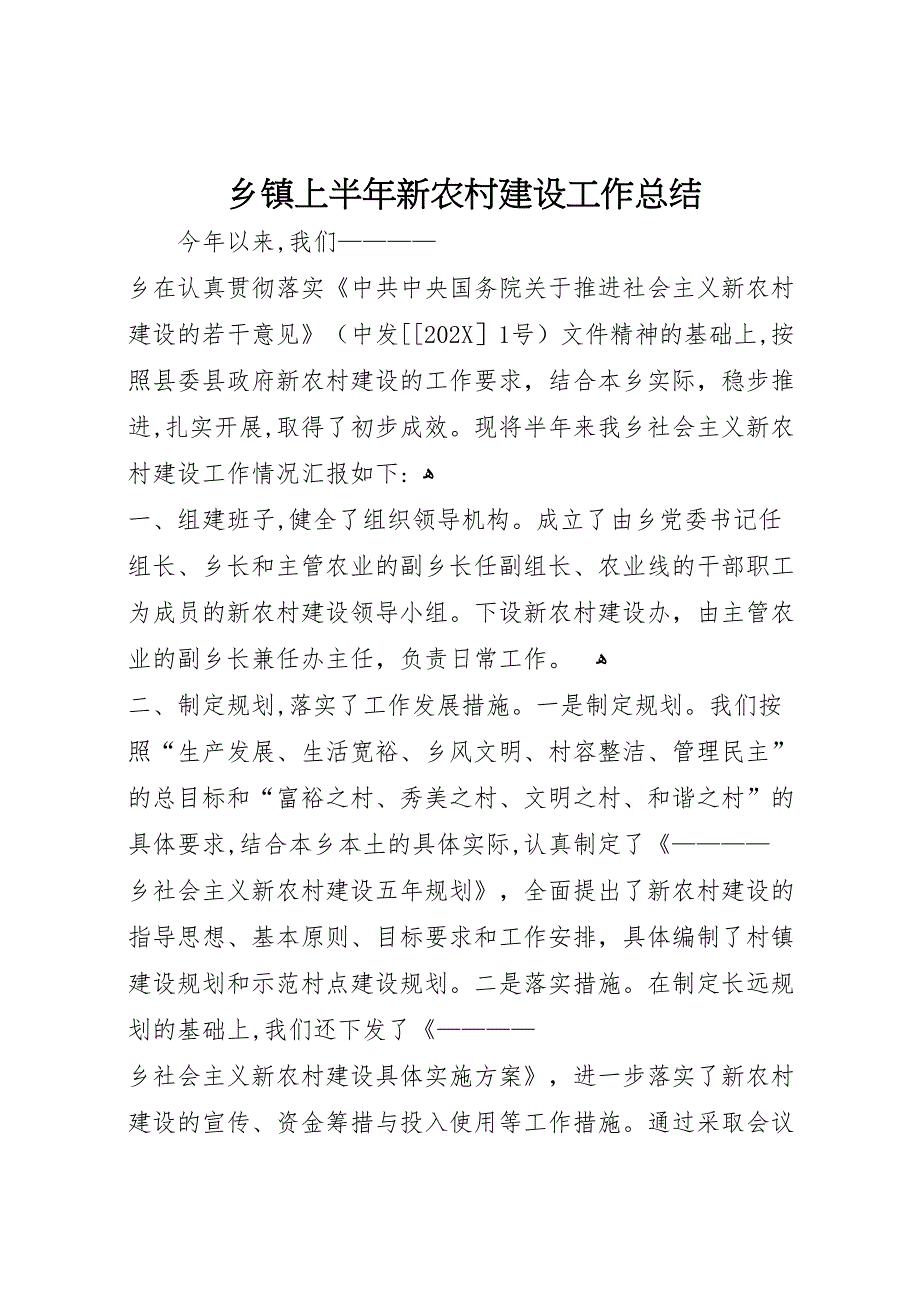 乡镇上半年新农村建设工作总结
今年以来,我们————
乡在认真贯彻落实《中共中央国务院关于推进社会主义新农村
建设的若干意见》（中发[[202X］1号）文件精神的基础上,按
照县委县政府新农村建设的工作要求，结合本乡实际，稳步推
进,扎实开展,取得了初步成效。现将半年来我乡社会主义新农
村建设工作情况汇报如下: ﻫ
一、组建班子,健全了组织领导机构。成立了由乡党委书记任
组长、乡长和主管农业的副乡长任副组长、农业线的干部职工
为成员的新农村建设领导小组。下设新农村建设办，由主管农
业的副乡长兼任办主任，负责日常工作。 ﻫ
二、制定规划,落实了工作发展措施。一是制定规划。我们按
照“生产发展、生活宽裕、乡风文明、村容整洁、管理民主”
的总目标和“富裕之村、秀美之村、文明之村、和谐之村”的
具体要求,结合本乡本土的具体实际,认真制定了《————
乡社会主义新农村建设五年规划》，全面提出了新农村建设的
指导思想、基本原则、目标要求和工作安排，具体编制了村镇
建设规划和示范村点建设规划。二是落实措施。在制定长远规
划的基础上,我们还下发了《————
乡社会主义新农村建设具体实施方案》，进一步落实了新农村
建设的宣传、资金筹措与投入使用等工作措施。通过采取会议